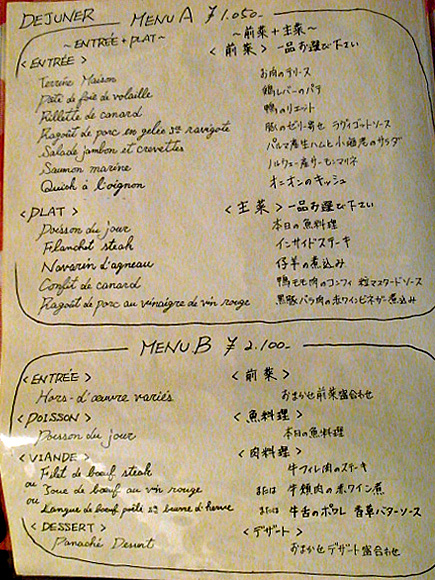 DEJUNER MENU A ¥1.050-
~ENTRÉE+PLAT~ ~前菜+主菜~
<ENTRÉE> <前菜>一品お選び下さい
Terrine Maison お肉のテリーヌ
Pâte de foie de volaille 鶏レバーのパテ
Rillette de canard 鴨のリエット
Ragoût de porc en gelée sce ravigote 豚のゼリー寄せ ラヴィゴットソース
Salade jambon et crevettes パルマ産生ハムと小海老のサラダ
Saumon marine ノルウェー産サーモンマリネ
Quich à l'oignon オニオンのキッシュ
<PLAT> <主菜>一品お選び下さい
Poisson du jour 本日の魚料理
Flanchet steak インサイドステーキ
Navarin d'agneau 仔羊の煮込み
Confit de canard 鴨モモ肉のコンフィ 粒マスタードソース
Ragoût de porc au vinaigre de vin rouge 黒豚バラ肉の赤ワインビネガー煮込み
MENU B ¥2.100-
<ENTRÉE> <前菜>
Hors-d'œuvre variés おまかせ前菜盛合わせ
<POISSON> <魚料理>
Poisson du jour 本日の魚料理
<VIANDE> <肉料理>
Filet de bœuf steak 牛フィレ肉のステーキ
ou Joue de bœuf au vin rouge または 牛頬肉の赤ワイン煮
ou Langue de bœuf poêle sce beurre d'herve または 牛舌のポワレ 香草バターソース
<DESSERT> <デザート>
Panaché Dessert おまかせデザート盛合わせ